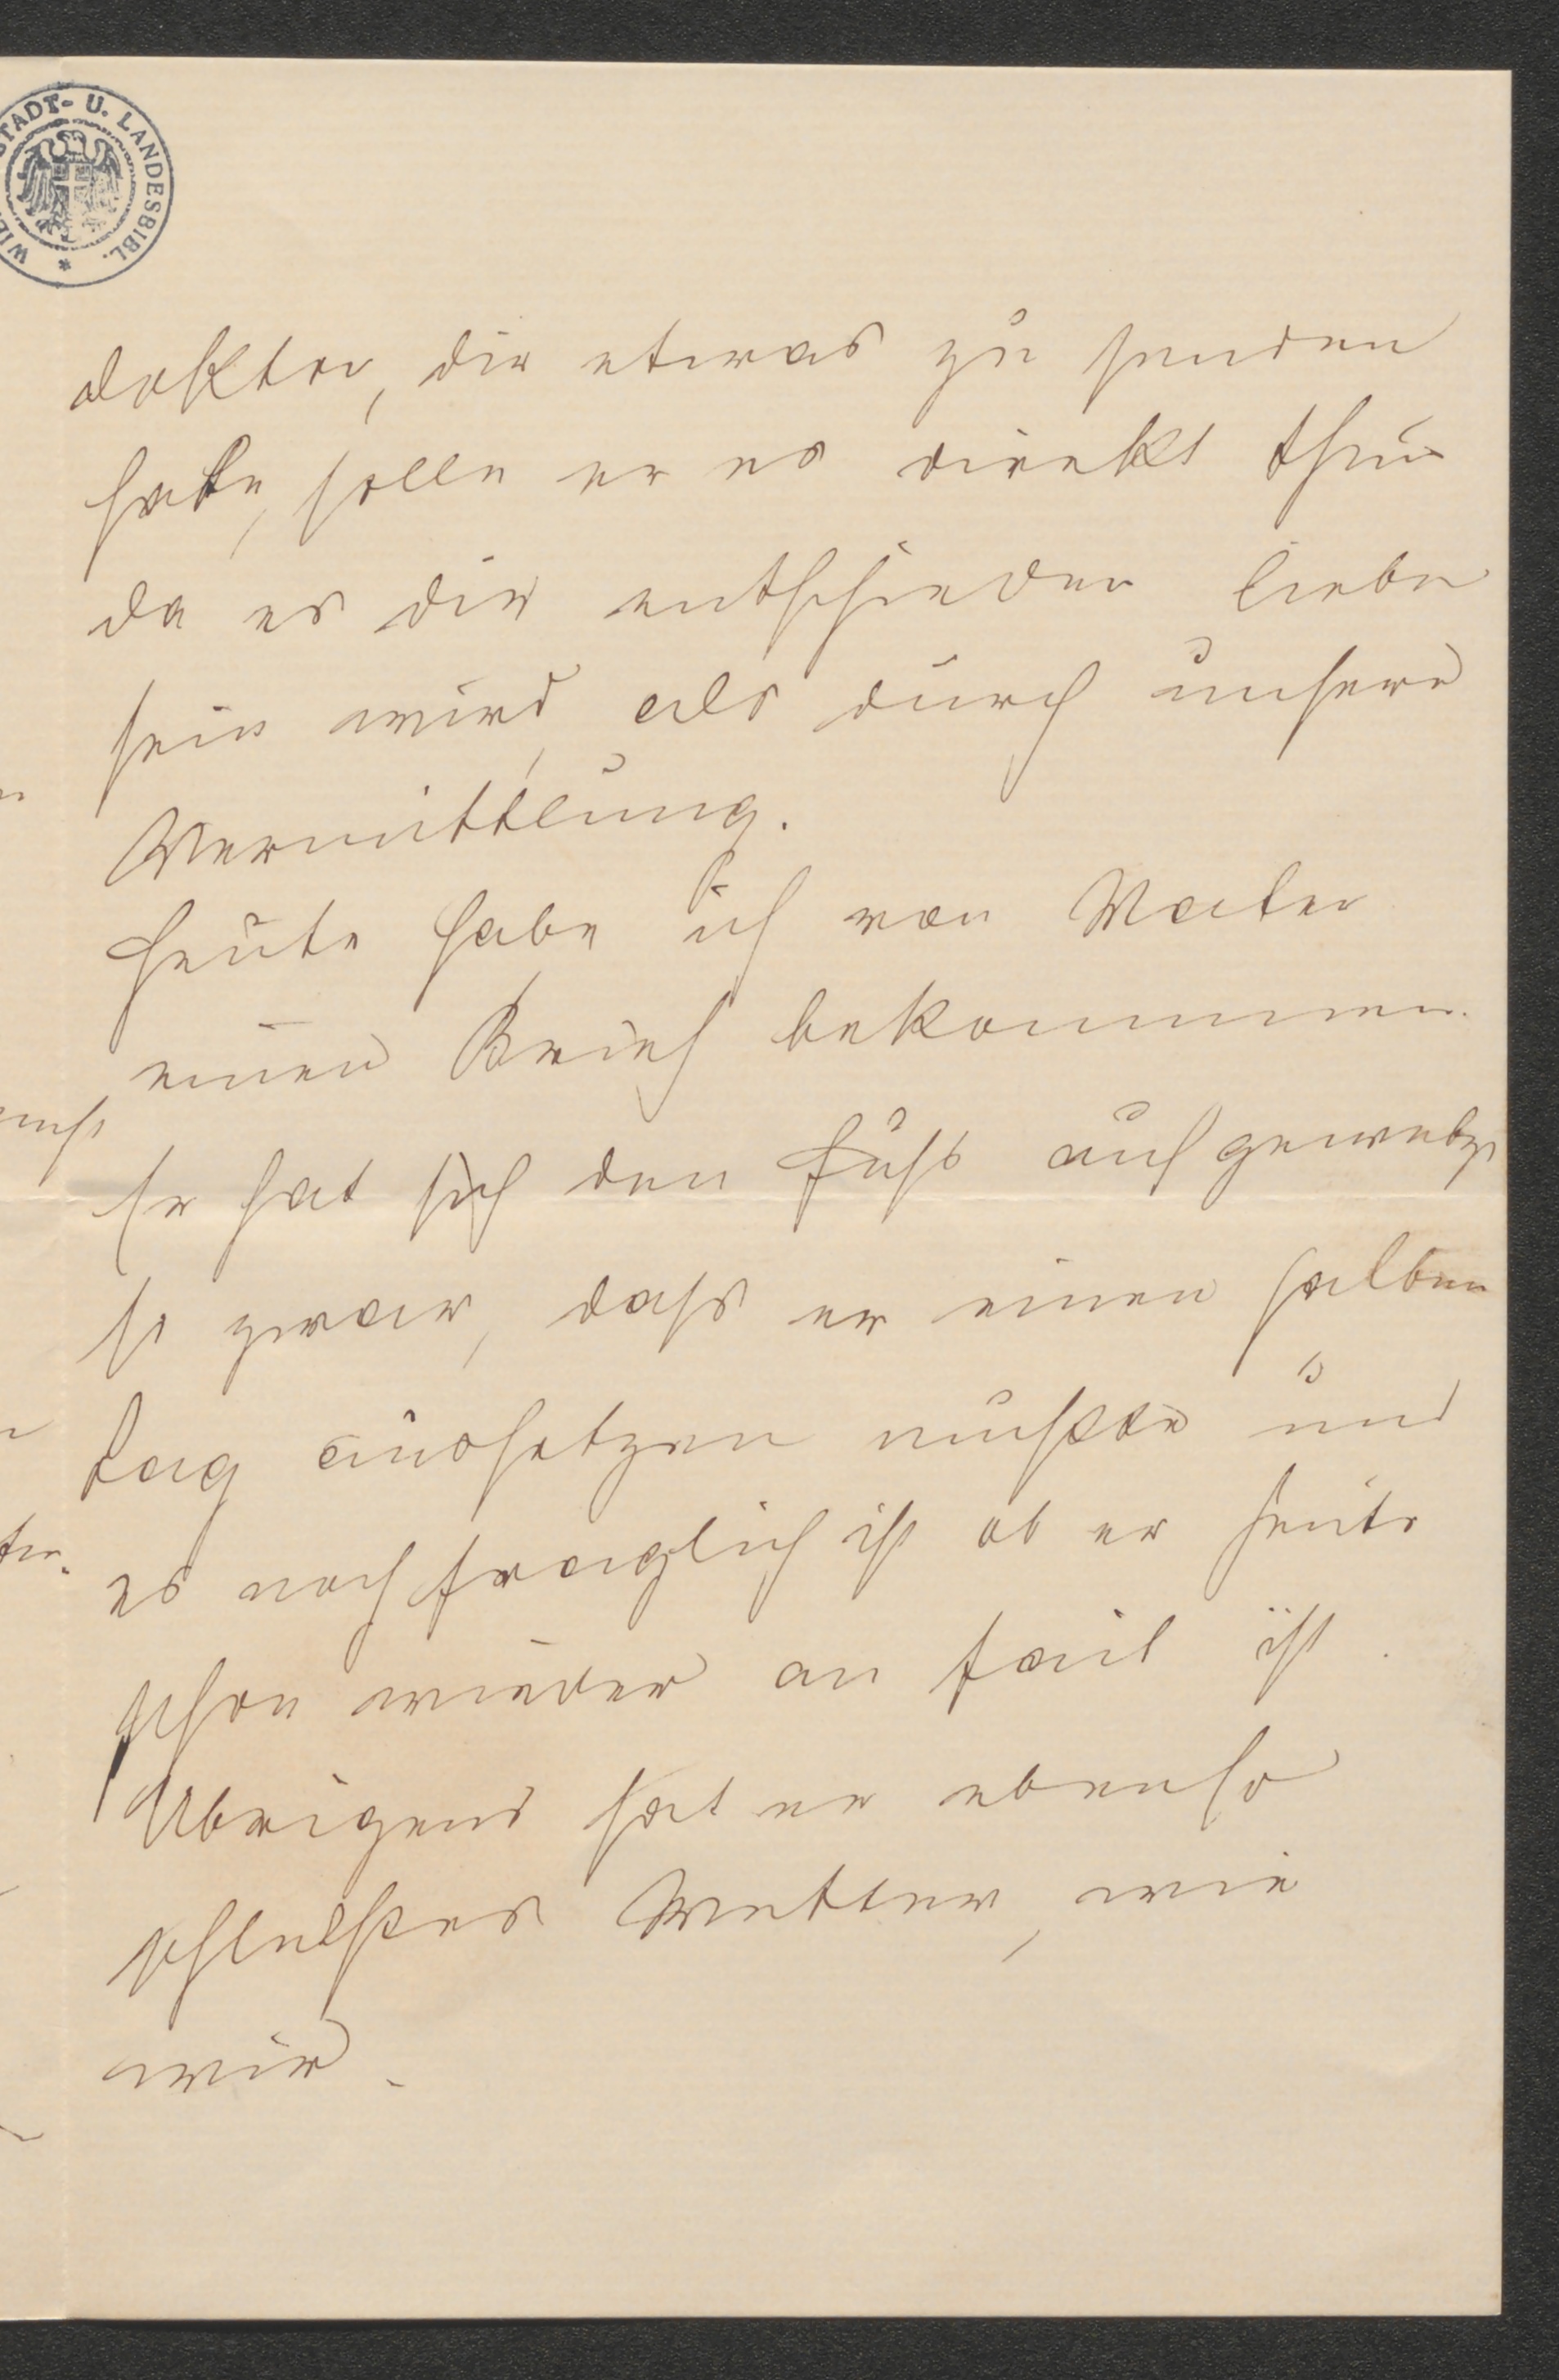 STADT- U. LANDESBIBL.
doktor, dir etwas zu senden
habe, solle er es direkt thun
da es dir entschieden lieber
sein wird, als durch unsere
Vermittlung.
Heute habe ich von Vater
einen Brief bekommen.
Er hat sich den Fuß aufgewetzt
so zwar, dass er einen halben
Tag aussetzen mußte und
es noch fraglich ist ob er heute
schon wieder an fait ist.
Übrigens hat er ebenso
schlechtes Wetter, wie
wir.